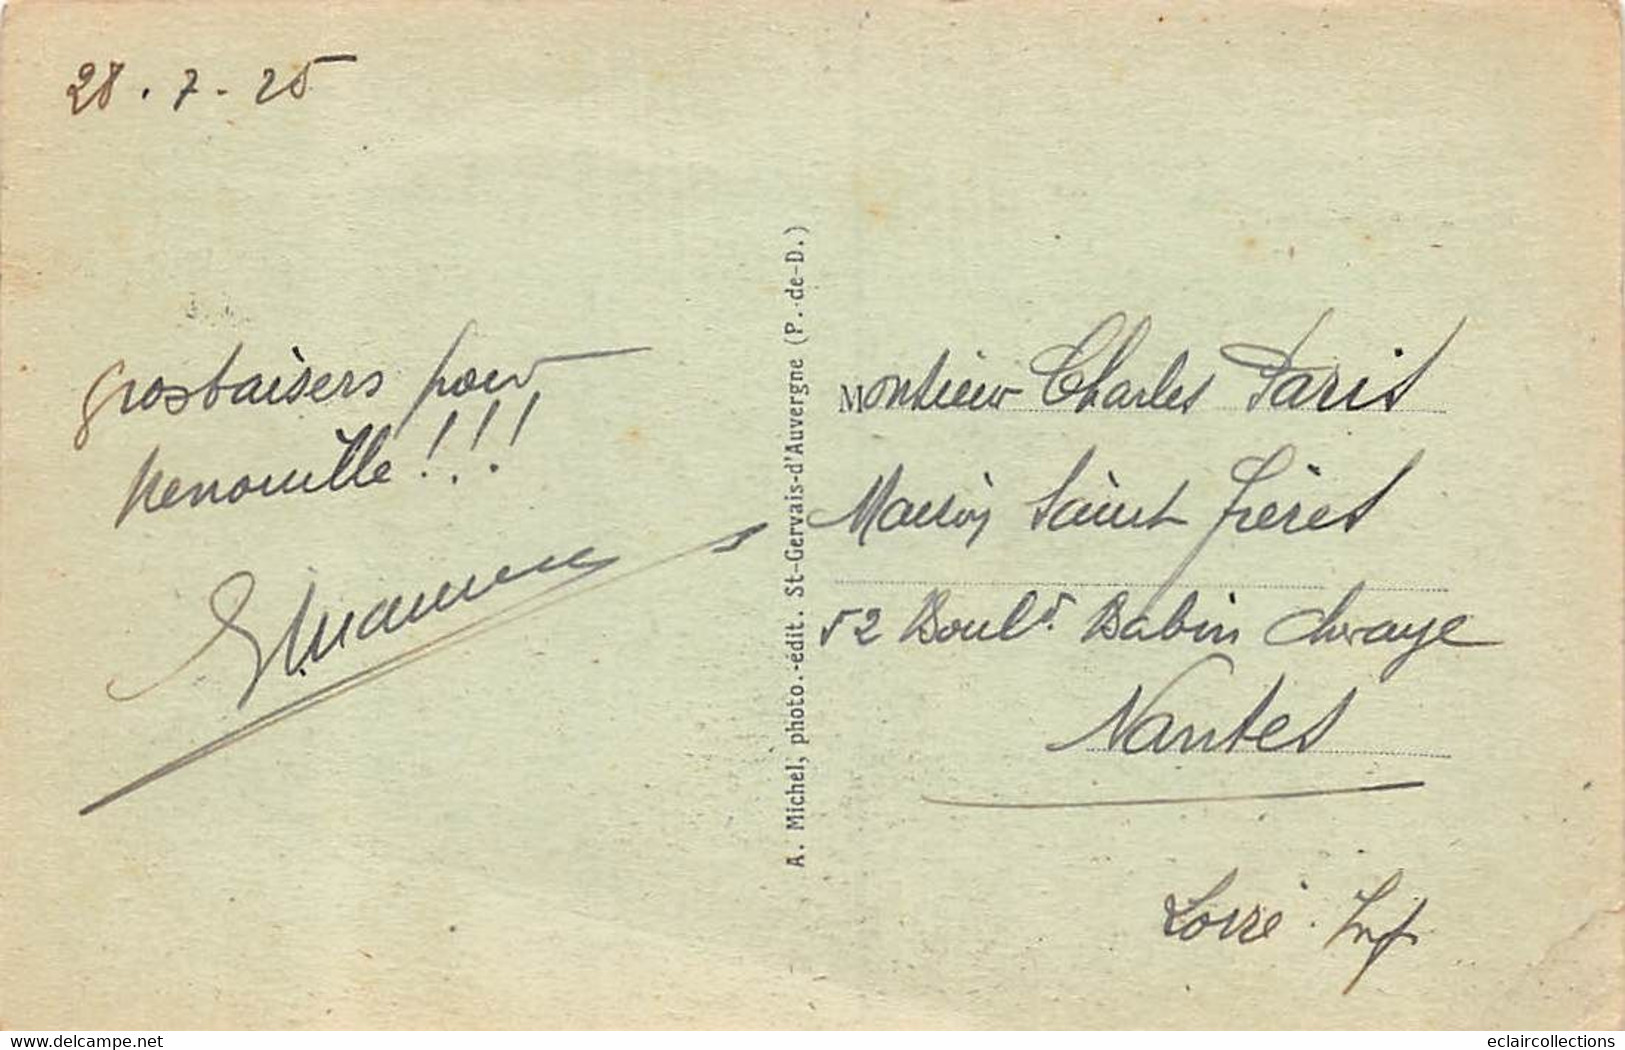 28.7.25
gros baisers pour
!!!
A. Michel, photo.-édit. St-Gervais-d'Auvergne (P.-de-D.)
Monsieur Charles Paris
Maison Saint frères
52 Boulᵈ. Babin Chevaye
Nantes
Loire. Inf
delcampe.net
eclaircollections